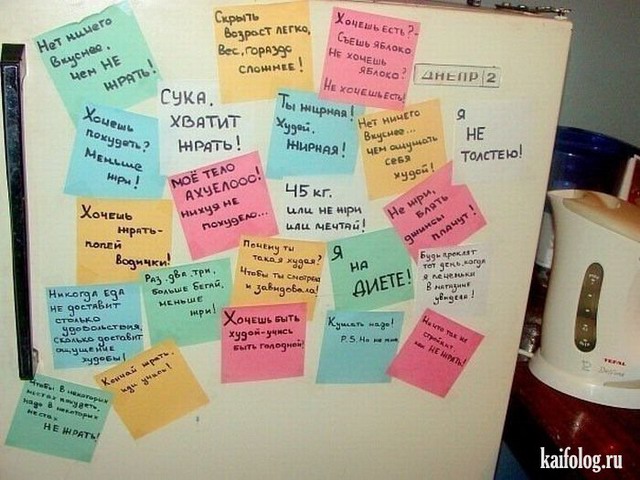 Нет ничего
вкуснее,
чем НЕ
ЖРАТЬ!
Скрыть
возраст легко,
Вес, гораздо
сложнее!
Хочешь есть?-
Съешь яблоко
Не хочешь
яблоко?
Не хочешь есть!
ДНЕПР 2
Хочешь
похудеть?
Меньше
жри!
СУКА,
ХВАТИТ
ЖРАТЬ!
Ты жирная!
Худей,
ЖИРНАЯ!
Нет ничего
вкуснее...
чем ощущать
себя
худой!
Я
НЕ
ТОЛСТЕЮ!
МОЁ ТЕЛО
АХУЕЛООО!
НИХУЯ НЕ
ПОХУДЕЛО...
45 кг.
или не жри
или мечтай!
Не жри,
блять
джинсы
плачут!
Хочешь
жрать-
попей
водички!
Почему ты
такая худая?
Чтобы ты смотрела
и завидовала!
Я
НА
ДИЕТЕ!
Будь проклят
тот день, когда
я печеньки
в магазине
увидела!
Никогда еда
не доставит
столько
удовольствия,
сколько доставит
ощущение
худобы!
Раз, два, три,
больше бегай,
меньше
жри!
Хочешь быть
худой-учись
быть голодной!
Кушать надо!
P.S. Но не мне
Ничто так не
стройнит
как НЕ ЖРАТЬ!
Чтобы в некоторых
местах похудеть,
надо в некоторых
местах
НЕ ЖРАТЬ!
Кончай жрать,
иди учись!
TEFAL
kaifolog.ru